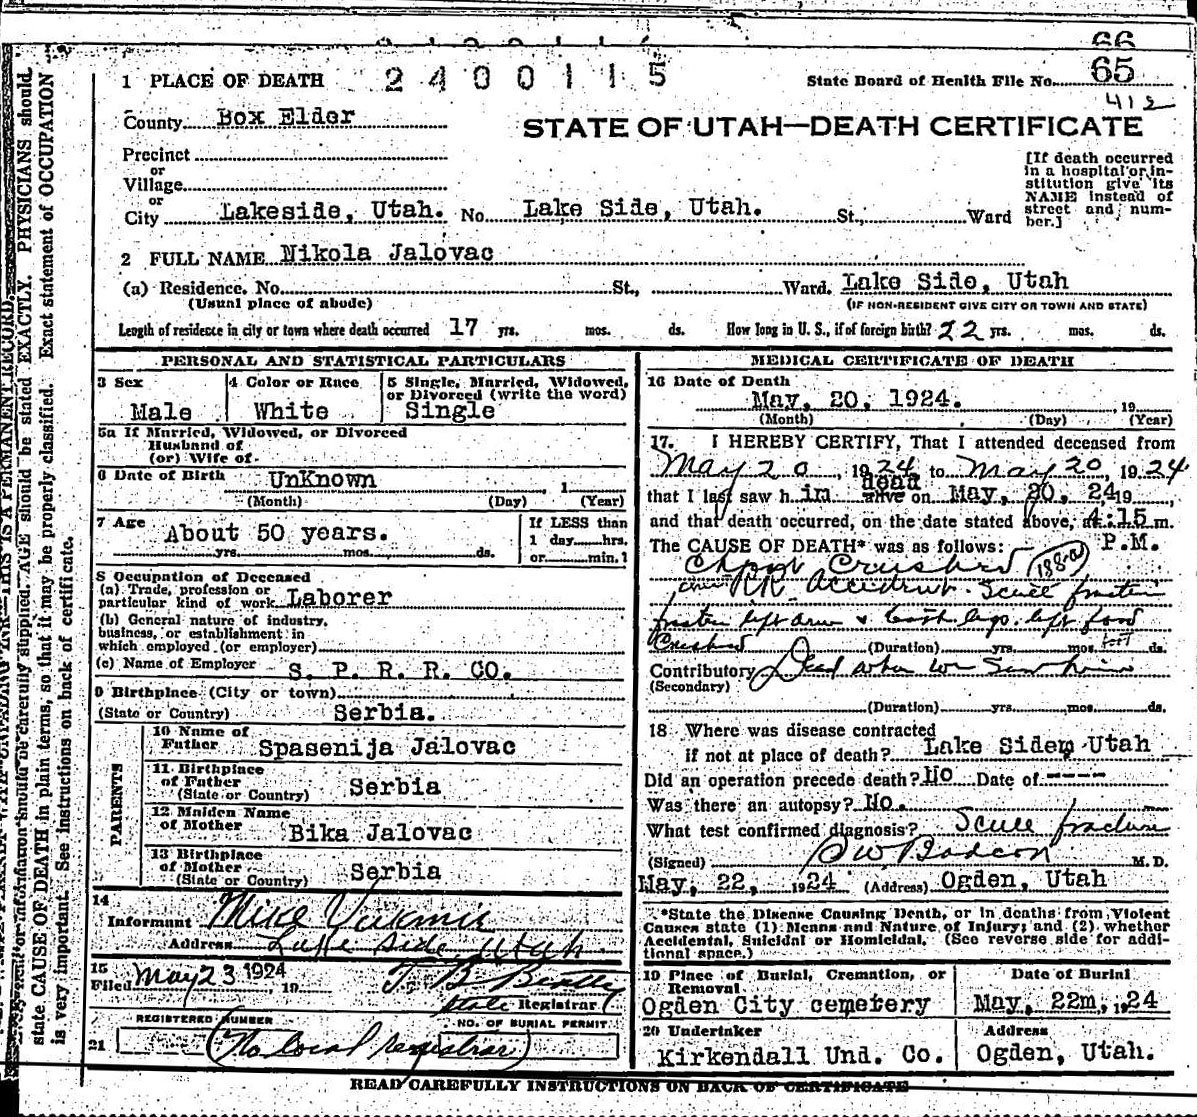 66
2400115
1 PLACE OF DEATH
State Board of Health File No. 65
412
County Box Elder
STATE OF UTAH—DEATH CERTIFICATE
Precinct
or
Village
or
City Lakeside, Utah. No. Lake Side, Utah. St., Ward
[If death occurred
in a hospital or in-
stitution give its
NAME instead of
street and num-
ber.]
2 FULL NAME Nikola Jalovac
(a) Residence. No. St., Ward. Lake Side, Utah
(Usual place of abode) (IF NON-RESIDENT GIVE CITY OR TOWN AND STATE)
Length of residence in city or town where death occurred 17 yrs. mos. ds. How long in U. S., if of foreign birth? 22 yrs. mos. ds.
PERSONAL AND STATISTICAL PARTICULARS
3 Sex
Male
4 Color or Race
White
5 Single, Married, Widowed,
or Divorced (write the word)
Single
5a If Married, Widowed, or Divorced
Husband of
(or) Wife of
6 Date of Birth UnKnown, 1
(Month) (Day) (Year)
7 Age About 50 years.
yrs. mos. ds.
If LESS than
1 day hrs.
or min.
8 Occupation of Deceased
(a) Trade, profession or
particular kind of work Laborer
(b) General nature of industry,
business, or establishment in
which employed (or employer)
(c) Name of Employer S. P. R. R. CO.
9 Birthplace (City or town)
(State or Country) Serbia.
PARENTS
10 Name of
Father Spasenija Jalovac
11 Birthplace
of Father
(State or Country) Serbia
12 Maiden Name
of Mother Bika Jalovac
13 Birthplace
of Mother
(State or Country) Serbia
14
Informant Mike Vukmir
Address Lake Side Utah
15
Filed May 23 1924, 19
T. B. Beatty
State Registrar
REGISTERED NUMBER NO. OF BURIAL PERMIT
21 (No local registrar)
MEDICAL CERTIFICATE OF DEATH
16 Date of Death
May, 20, 1924. , 19
(Month) (Day) (Year)
17. I HEREBY CERTIFY, That I attended deceased from
May 20, 1924 to May 20, 1924
that I last saw him alive dead on May, 20, 24 19
and that death occurred, on the date stated above, at 4:15 m.
The CAUSE OF DEATH* was as follows: P.M.
Chest Crushed (188-a)
RR Accident. Scull fractur
left arm & both legs. left foot
Crushed (Duration) yrs. mos. ds.
Contributory Dead when we saw him
(Secondary)
(Duration) yrs. mos. ds.
18 Where was disease contracted
if not at place of death? Lake Side, Utah
Did an operation precede death? No Date of ----
Was there an autopsy? No.
What test confirmed diagnosis? Scull fracture
(Signed) M. D.
May, 22, 1924 (Address) Ogden, Utah
*State the Disease Causing Death, or in deaths from Violent
Causes state (1) Means and Nature of Injury; and (2) whether
Accidental, Suicidal or Homicidal. (See reverse side for addi-
tional space.)
19 Place of Burial, Cremation, or
Removal.
Ogden City cemetery
Date of Burial
May, 22m, 1924
20 Undertaker
Kirkendall Und. Co.
Address
Ogden, Utah.
READ CAREFULLY INSTRUCTIONS ON BACK OF CERTIFICATE
THIS IS A PERMANENT RECORD.
carefully supplied. AGE should be stated EXACTLY. PHYSICIANS should
state CAUSE OF DEATH in plain terms, so that it may be properly classified. Exact statement of OCCUPATION
is very important. See instructions on back of certificate.